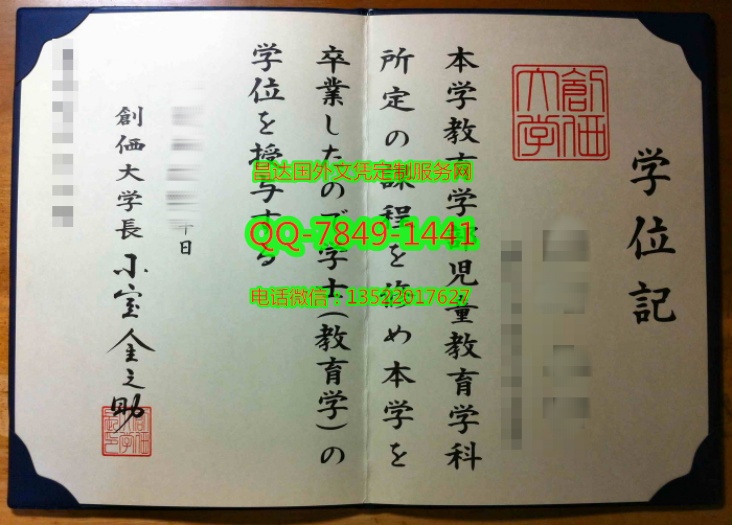 学位記
創価
大学
本学教育学部児童教育学科
所定の課程を修め本学を
卒業したので学士(教育学)の
学位を授与する
日
創価大学長 小室金之助
昌达国外文凭定制服务网
QQ-7849-1441
电话微信:13522017627